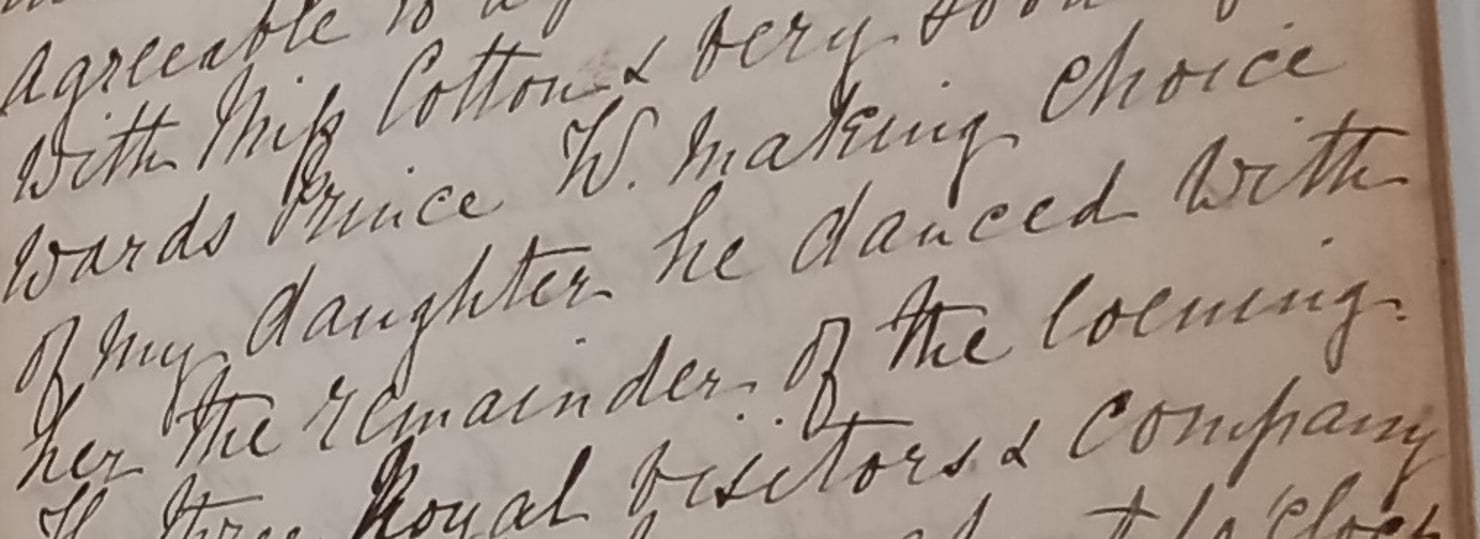 agreeable to a
with Miss Cotton & very soon
wards Prince W. making choice
of my daughter he danced with
her the remainder of the evening.
three Royal visitors & company
o'clock